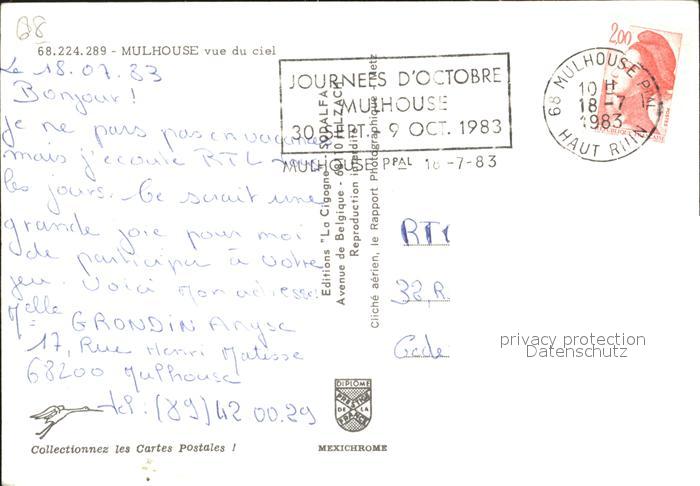 68.224.289 - MULHOUSE vue du ciel
Le 18.07.83
Bonjour !
Je ne pars pas en vacances
mais j'écoute RTL tous
les jours. Ce serait une
grande joie pour moi
de participer à votre
jeu. Voici mon adresse:
Melle GRONDIN Anyse
17, Rue Henri Matisse
68200 Mulhouse
tel: (89) 42 00.29
Collectionnez les Cartes Postales !
JOURNEES D'OCTOBRE
MULHOUSE
30 SEPT. - 9 OCT. 1983
MULHOUSE PPAL 18-7-83
Editions "La Cigogne"
Avenue de Belgique - HELZACH
Reproduction interdite
Cliché aérien, le Rapport Photographique - Metz
DIPLOME
PRESTIGE
DE LA
FRANCE
MEXICHROME
2,00
68 MULHOUSE PPAL
10 H
18-7
1983
HAUT RHIN
RTL
22, R.
Cede
privacy protection
Datenschutz